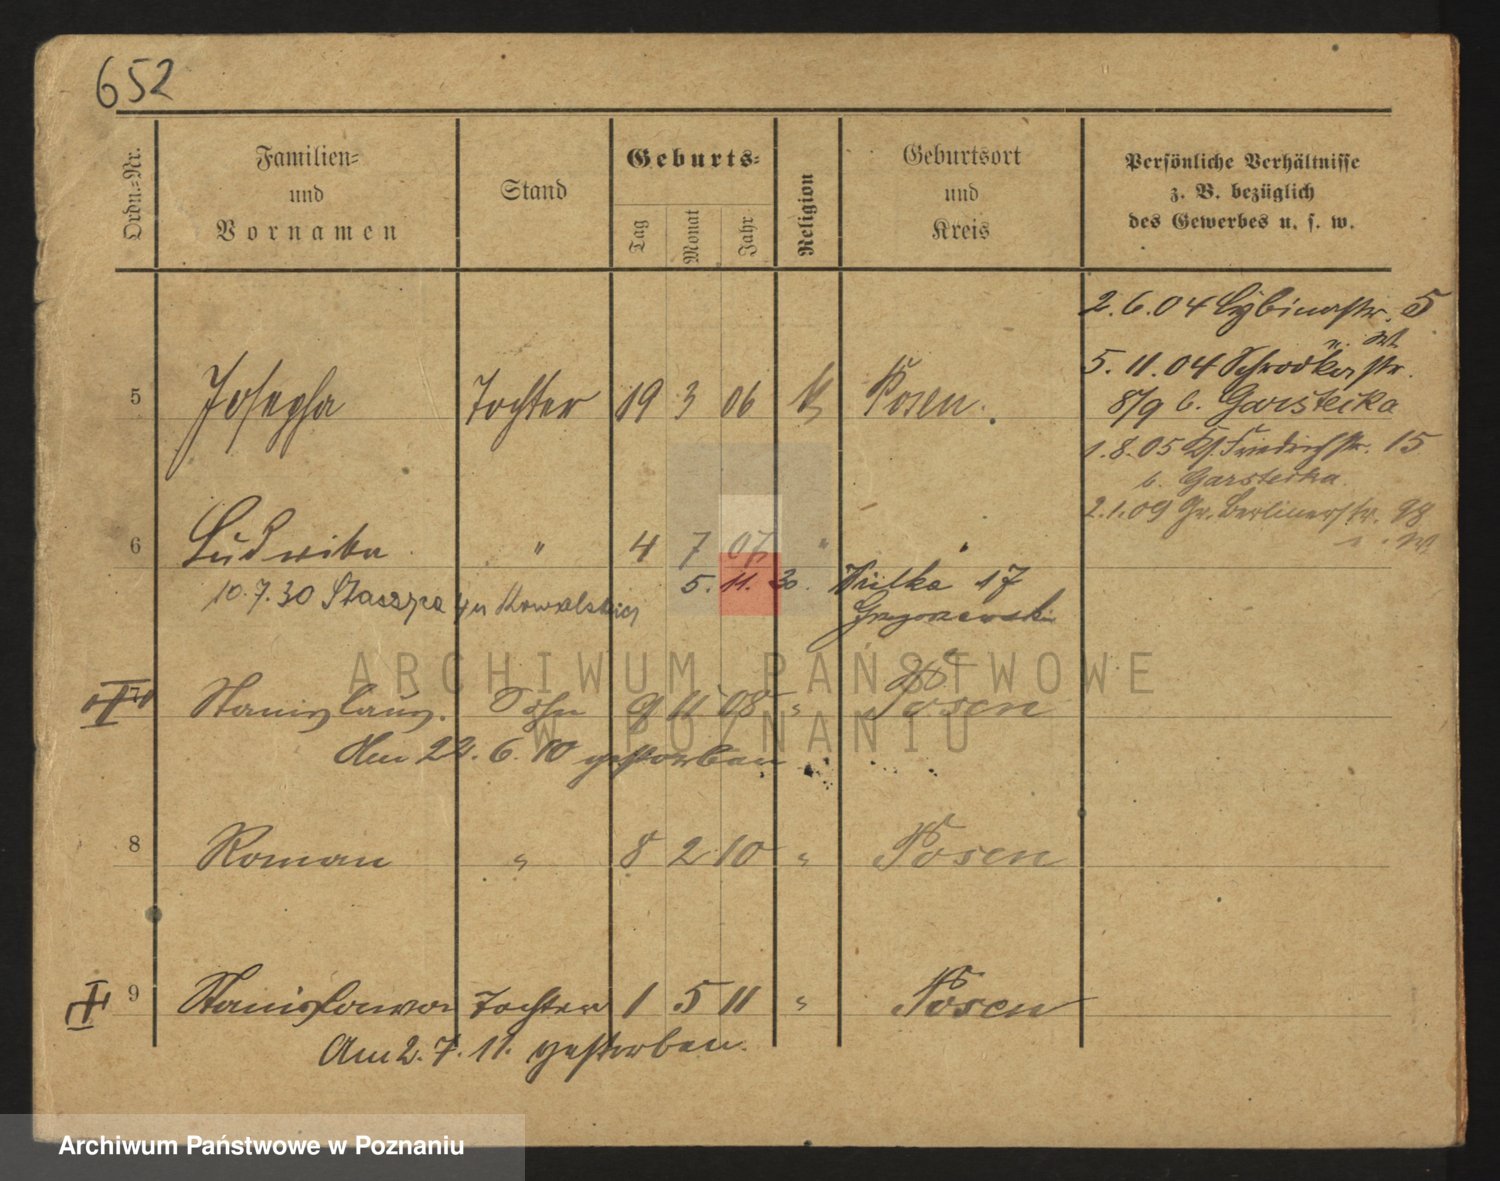 652
Ordn.=Nr.
Familien=
und
Vornamen
Stand
Geburts=
Tag
Monat
Jahr
Religion
Geburtsort
und
Kreis
Persönliche Verhältnisse
z. B. bezüglich
des Gewerbes u. s. w.
2.6.04 Cybinastr. 5
5.11.04 Schrodkastr.
8/9 b. Garsteika
1.8.05 Friedrichstr. 15
b. Garsteika
2.1.09 Gr. Berlinerstr. 98
5 Josepha Tochter 19 3 06 Posen.
6 Ludwika " 4 7 07 " "
10.7.30 Staszyca Kowalskiej
5. 11. 30. Wilka 17
7 Stanislaus. Sohn 9 11 08 " Posen
Am 22.6.10 gestorben
8 Roman " 8 2 10 " Posen
9 Stanislawa Tochter 1 5 11 " Posen
Am 2.7.11. gestorben.
ARCHIWUM PAŃSTWOWE
W POZNANIU
Archiwum Państwowe w Poznaniu